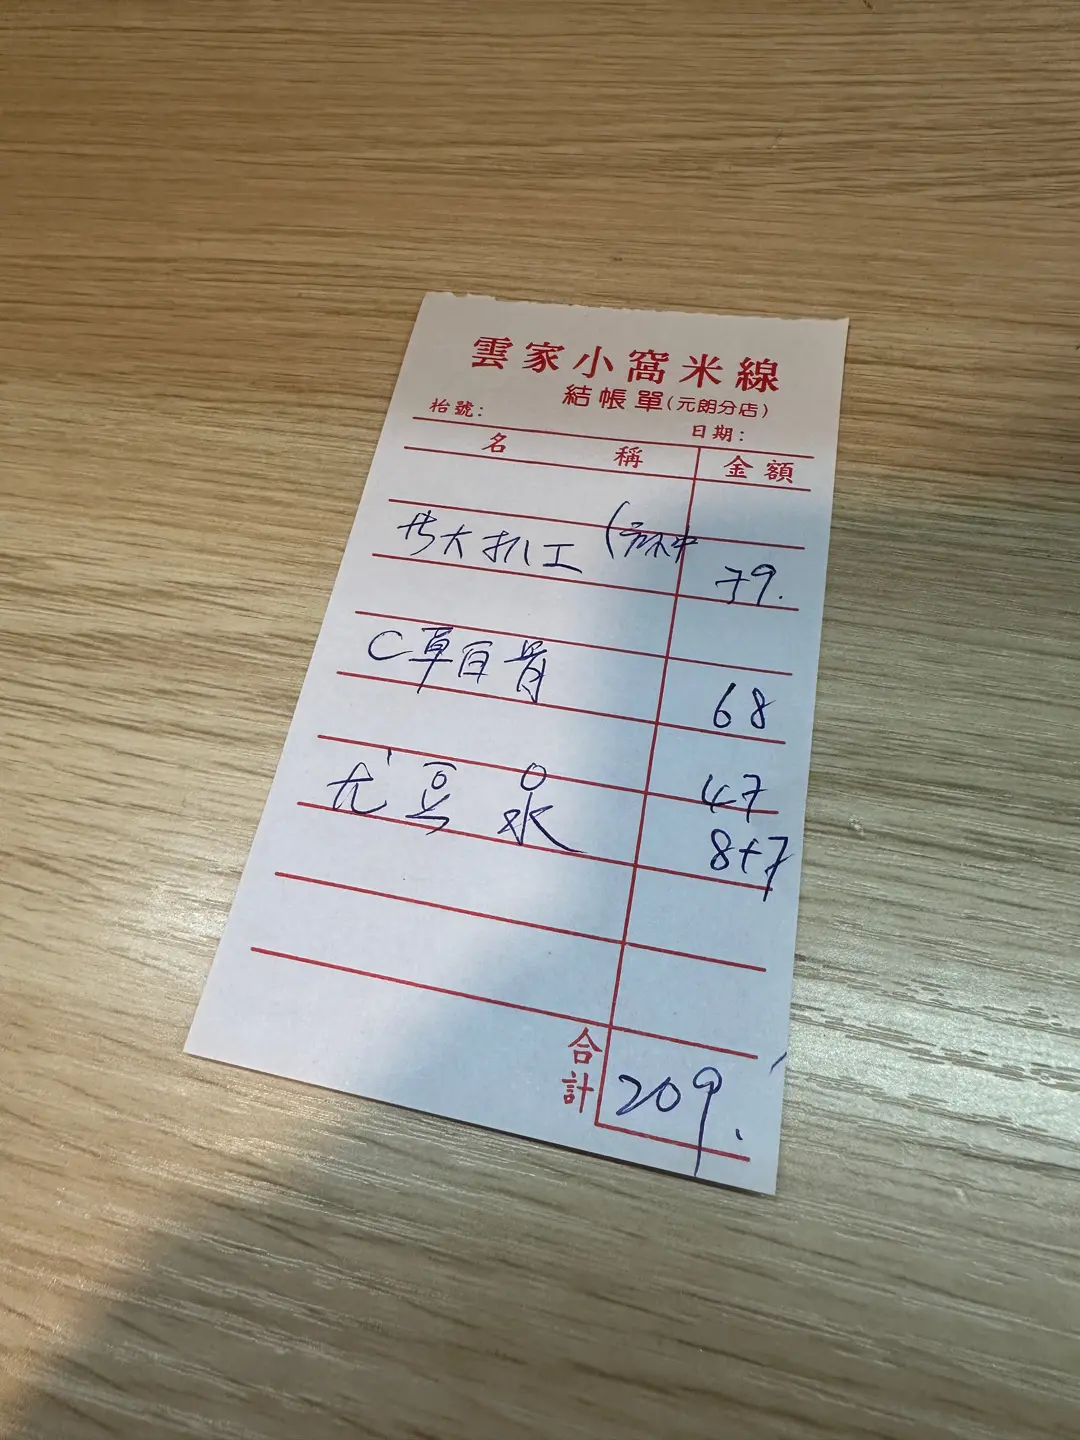 雲家小窩米線
結帳單(元朗分店)
枱號: 日期:
名稱 金額
大扒工 ( 79.
C草百骨 68
47
豆 8+7
合計 209.